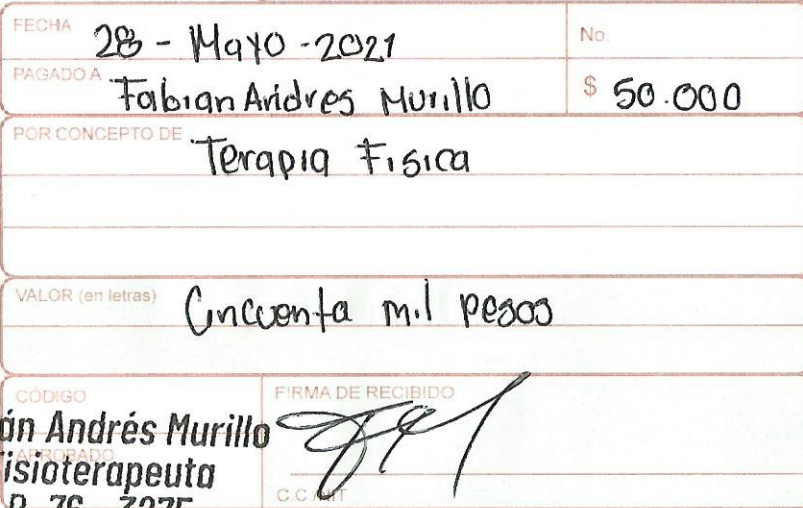 FECHA 28 - Mayo - 2021 No.
PAGADO A Fabian Andres Murillo $ 50.000
POR CONCEPTO DE Terapia Fisica
VALOR (en letras) Cincuenta mil pesos
CÓDIGO FIRMA DE RECIBIDO
án Andrés Murillo
APROBADO
isioterapeuta
C.C./NIT